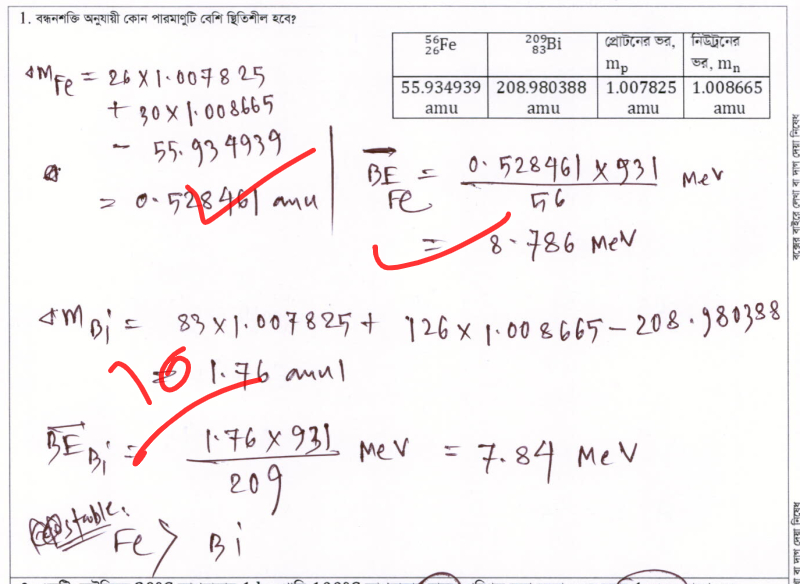 1. বন্ধনশক্তি অনুযায়ী কোন পারমাণুটি বেশি স্থিতিশীল হবে?
⁵⁶₂₆Fe ²⁰⁹₈₃Bi প্রোটনের ভর, mₚ নিউট্রনের ভর, mₙ
55.934939 amu 208.980388 amu 1.007825 amu 1.008665 amu
ΔM Fe = 26 × 1.007825
+ 30 × 1.008665
- 55.934939
= 0.528461 amu
BE Fe = 0.528461 × 931 / 56 MeV
= 8.786 MeV
ΔM Bi = 83 × 1.007825 + 126 × 1.008665 - 208.980388
= 1.76 amu
10
BE Bi = 1.76 × 931 / 209 MeV = 7.84 MeV
stable:
Fe > Bi
বক্সের বাইরে লেখা বা দাগ দেয়া নিষেধ
বা দাগ দেয়া নিষেধ